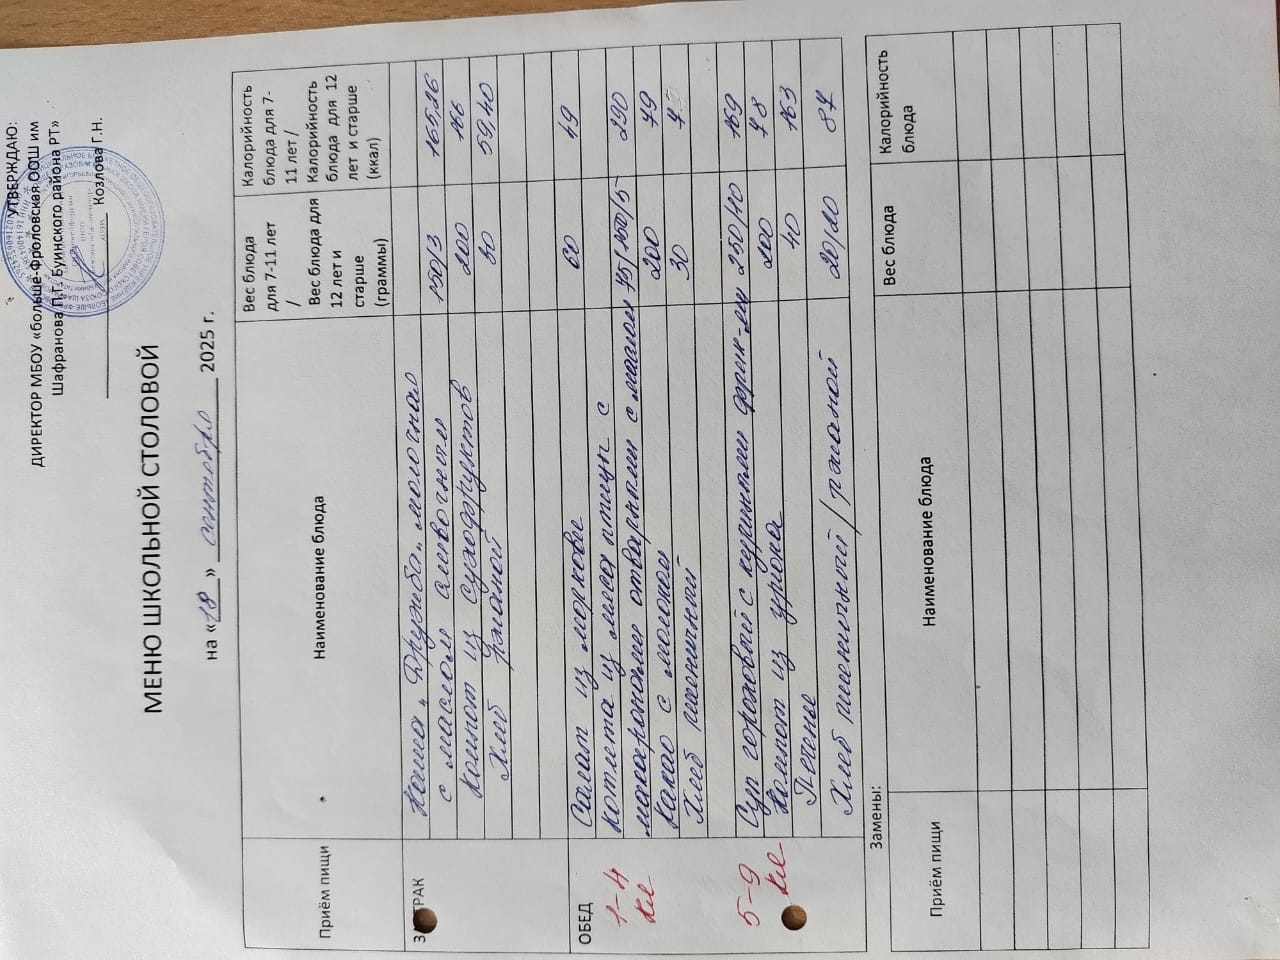 УТВЕРЖДАЮ:
ДИРЕКТОР МБОУ «больше-Фроловская ООШ им
Шафранова П.Т. Буинского района РТ»
Козлова Г.Н.
МЕНЮ ШКОЛЬНОЙ СТОЛОВОЙ
на «18» сентября 2025 г.
Приём пищи Наименование блюда Вес блюда для 7-11 лет / Вес блюда для 12 лет и старше (граммы) Калорийность блюда для 7-11 лет / Калорийность блюда для 12 лет и старше (ккал)
Каша "Дружба" молочная
с маслом сливочным 150/3 165,26
Компот из сухофруктов 200 166
Хлеб ржаной 50 59,40
ОБЕД
Салат из моркови 60 49
1-4 кл
Котлета из мяса птицы с
макаронами отварными с маслом 75/100/5 290
Какао с молоком 200 79
Хлеб пшеничный 30
5-9 кл
Суп гороховый с куриными фрик-ми 250/40 169
Компот из урюка 200 78
Печенье 40 163
Хлеб пшеничный/ржаной 20/20 87
Замены:
Приём пищи Наименование блюда Вес блюда Калорийность блюда